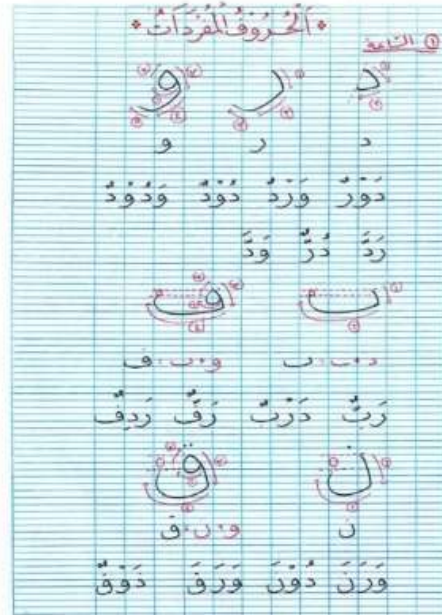 اَلْحُرُوْفُ الْمُفْرَدَاتُ
د ر و
د ر و
دَوْرٌ وَرْدٌ دُوْدٌ وَدُوْدٌ
رَدَّ دُرٌّ وَدَّ
ب ف
د + ب : ب و + ب : ف
رَبٌّ دَرْبٌ رَفٌّ رَدِفٌ
ن ق
ن و + ن : ق
وَزَنَ دُوْنَ وَرَقَ ذَوْقٌ